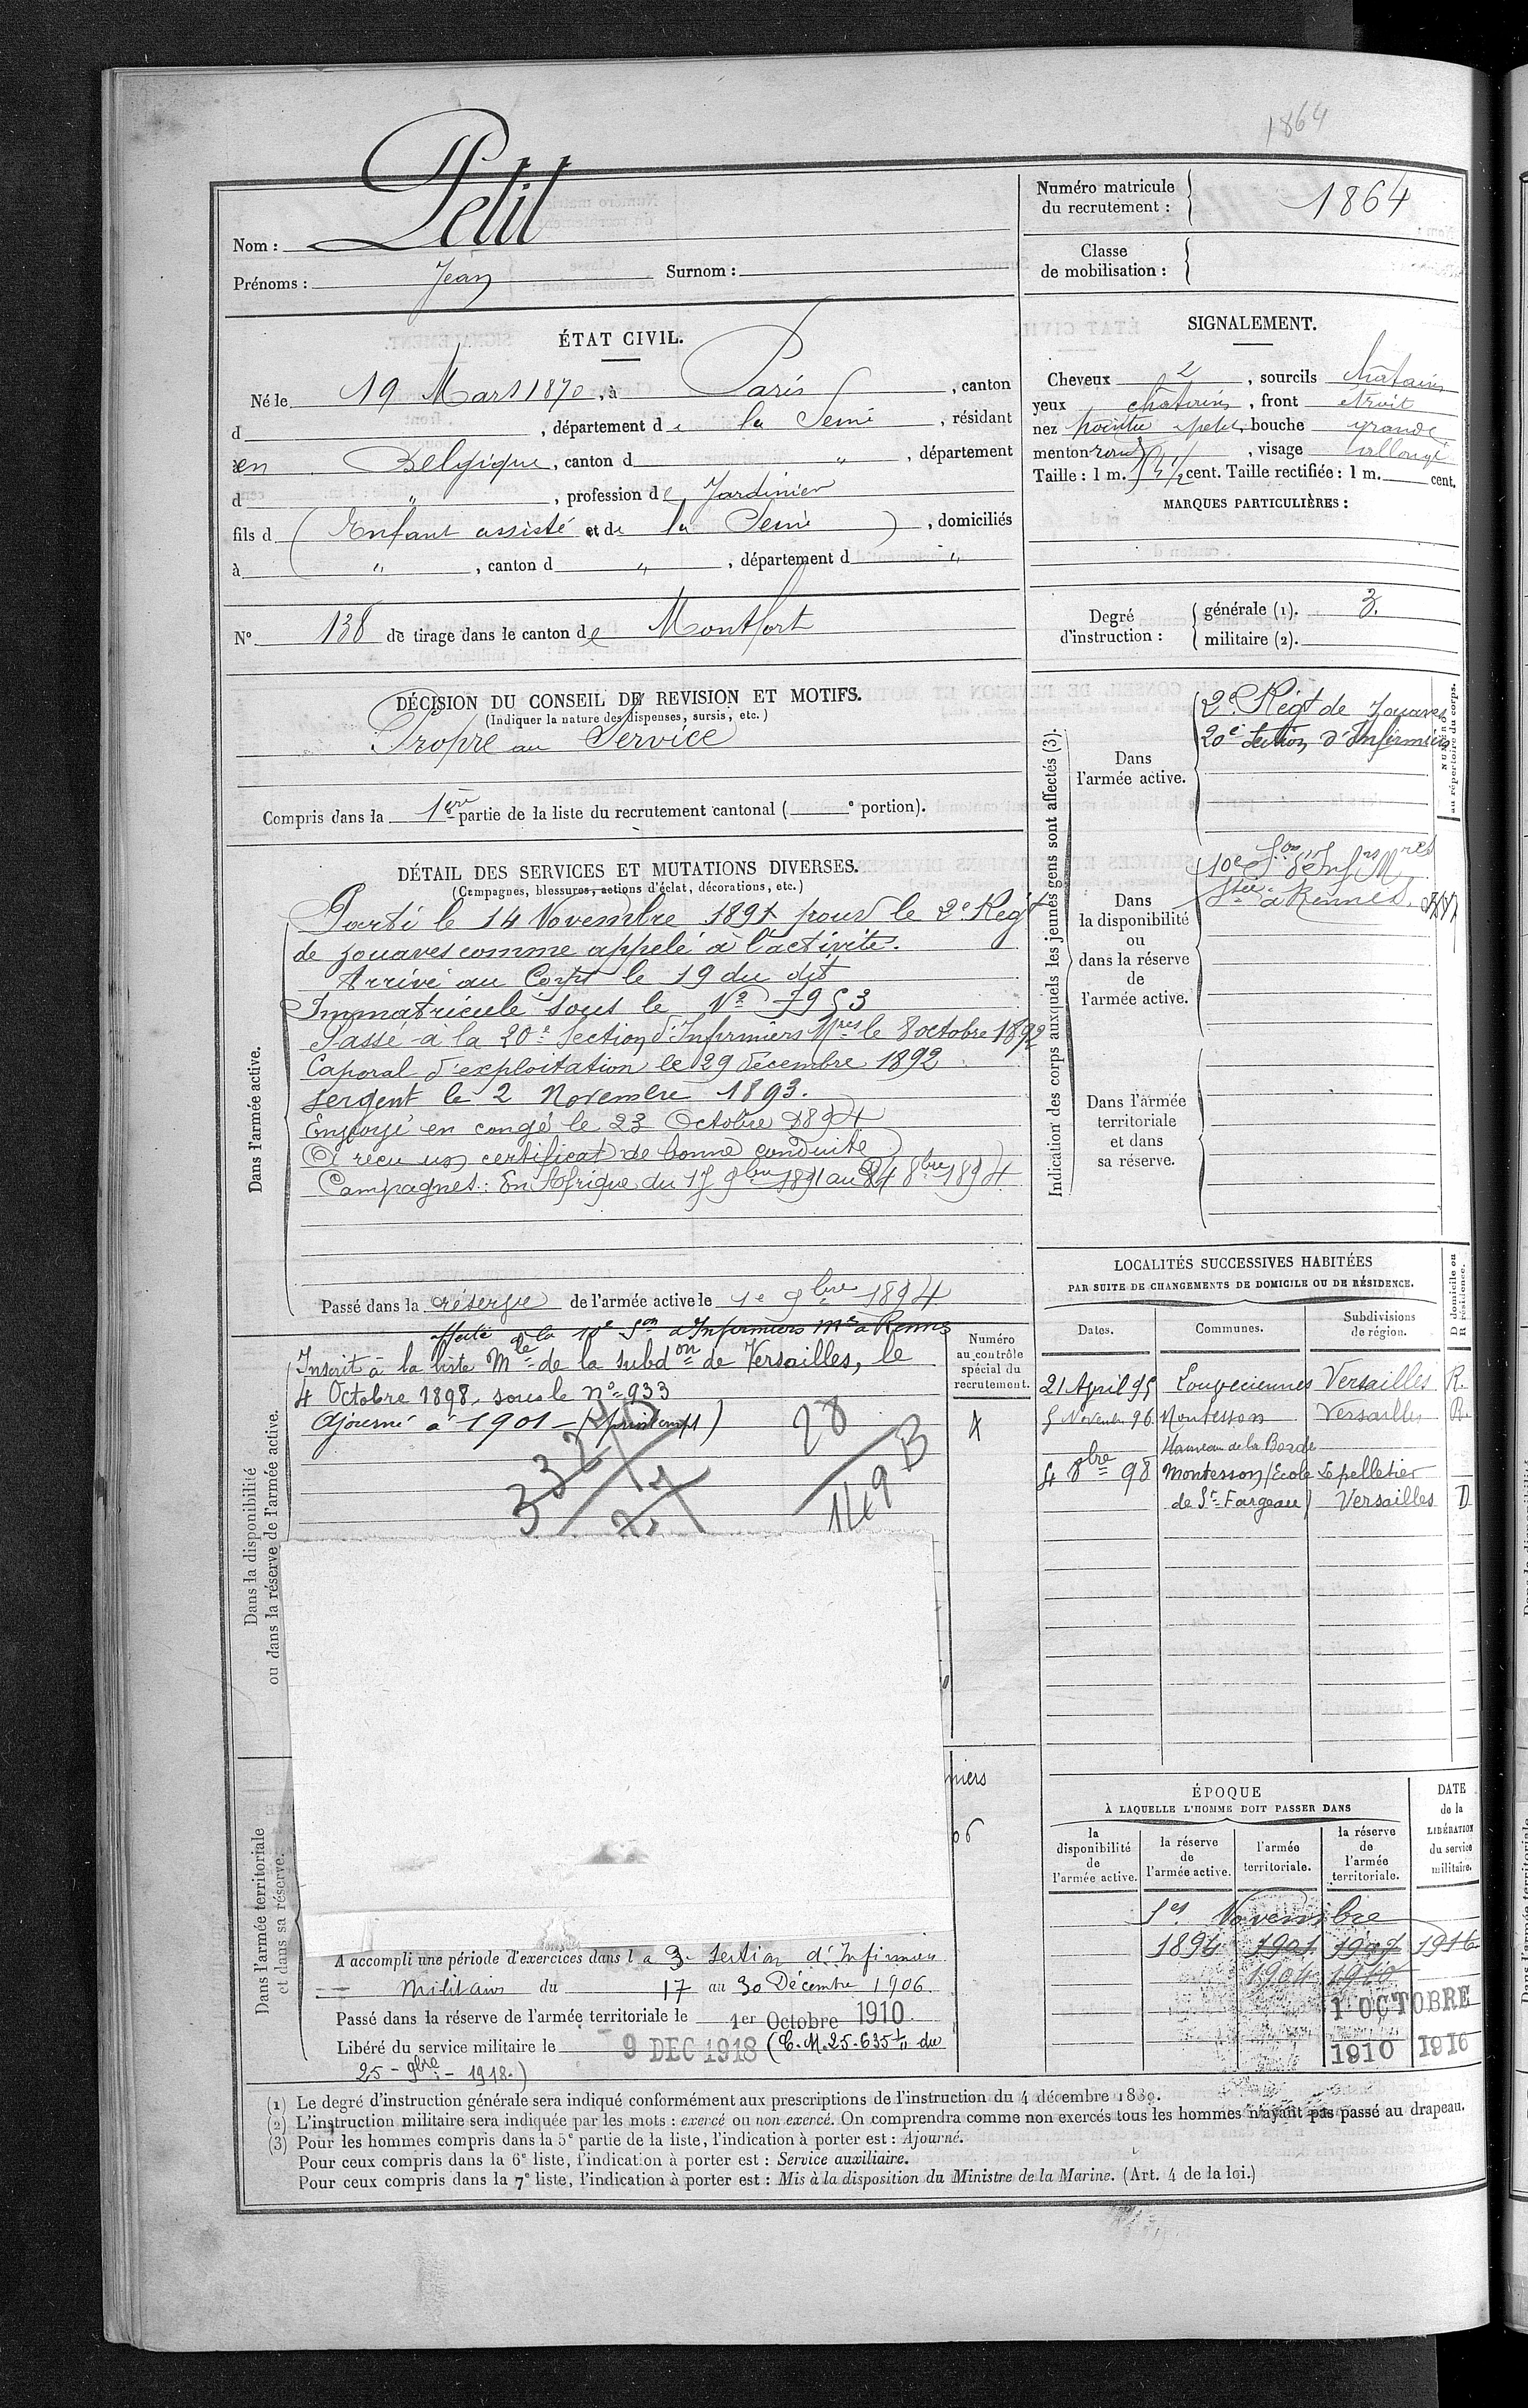 1864
Petit
Nom :
Prénoms : Jean Surnom :
Numéro matricule
du recrutement : 1864
Classe
de mobilisation :
ÉTAT CIVIL.
Né le 19 Mars 1870, à Paris, canton
d , département de la Seine, résidant
en Belgique, canton d " , département
d " , profession de Jardinier
fils d (Enfant assisté et de la Seine), domiciliés
à " , canton d " , département d "
SIGNALEMENT.
Cheveux 2, sourcils châtains
yeux châtains, front étroit
nez pointu petit, bouche grande
menton rond, visage allongé
Taille : 1 m. cent. Taille rectifiée : 1 m. cent.
MARQUES PARTICULIÈRES :
N° 138 de tirage dans le canton de Montfort
Degré
d'instruction :
générale (1). 3.
militaire (2).
DÉCISION DU CONSEIL DE REVISION ET MOTIFS.
(Indiquer la nature des dispenses, sursis, etc.)
Propre au Service
Compris dans la 1ère partie de la liste du recrutement cantonal ( e portion).
DÉTAIL DES SERVICES ET MUTATIONS DIVERSES.
(Campagnes, blessures, actions d'éclat, décorations, etc.)
Dans l'armée active.
Parti le 14 Novembre 1891 pour le 2e Régt
de zouaves comme appelé à l'activité.
Arrivé au Corps le 19 du dit
Immatriculé sous le No 7953
Passé à la 20e Section d'Infirmiers Mres le 8 octobre 1892
Caporal d'exploitation le 29 décembre 1892
Sergent le 2 Novembre 1893.
Envoyé en congé le 23 Octobre 1894
A reçu un certificat de bonne conduite
Campagnes : En Afrique du 17 9bre 1891 au 24 8bre 1894
Passé dans la réserve de l'armée active le 1e 9bre 1894
Indication des corps auxquels les jeunes gens sont affectés (3).
Dans
l'armée active.
2e Régt de Zouaves
20e Section d'Infirmiers
NUMÉRO
au répertoire du corps.
Dans
la disponibilité
ou
dans la réserve
de
l'armée active.
10e Son d'Infrs Mres
à Rennes.
Dans l'armée
territoriale
et dans
sa réserve.
Dans la disponibilité
ou dans la réserve de l'armée active.
Affecté à la 10e Son d'Infirmiers Mres à Rennes
Inscrit à la liste Mle de la subdon de Versailles, le
4 Octobre 1898, sous le no 933
Ajourné à 1901 - (printemps)
28
149 B
Numéro
au contrôle
spécial du
recrutement.
LOCALITÉS SUCCESSIVES HABITÉES
PAR SUITE DE CHANGEMENTS DE DOMICILE OU DE RÉSIDENCE.
D domicile ou
R résidence.
Dates. Communes. Subdivisions
de région.
21 April 95 Louveciennes Versailles R.
5 Novembre 96 Montesson Versailles R.
Hameau de la Borde
4 8bre 98 Montesson (Ecole Lepelletier
de St Fargeau) Versailles D
miers
06
Dans l'armée territoriale
et dans sa réserve.
A accompli une période d'exercices dans la 3e Section d'Infirmiers
Militaires du 17 au 30 Décembre 1906.
Passé dans la réserve de l'armée territoriale le 1er Octobre 1910.
Libéré du service militaire le 9 DEC 1918 (C.M. 25.635 1/11 du
25 - 9bre - 1918.)
ÉPOQUE
À LAQUELLE L'HOMME DOIT PASSER DANS
la
disponibilité
de
l'armée active.
la réserve
de
l'armée active.
l'armée
territoriale.
la réserve
de
l'armée
territoriale.
DATE
de la
LIBÉRATION
du service
militaire.
1er Novembre
1894 1901 1907 1916
1904 1910
1 OCTOBRE
1910 1916
(1) Le degré d'instruction générale sera indiqué conformément aux prescriptions de l'instruction du 4 décembre 1889.
(2) L'instruction militaire sera indiquée par les mots : exercé ou non exercé. On comprendra comme non exercés tous les hommes n'ayant pas passé au drapeau.
(3) Pour les hommes compris dans la 5e partie de la liste, l'indication à porter est : Ajourné.
Pour ceux compris dans la 6e liste, l'indication à porter est : Service auxiliaire.
Pour ceux compris dans la 7e liste, l'indication à porter est : Mis à la disposition du Ministre de la Marine. (Art. 4 de la loi.)